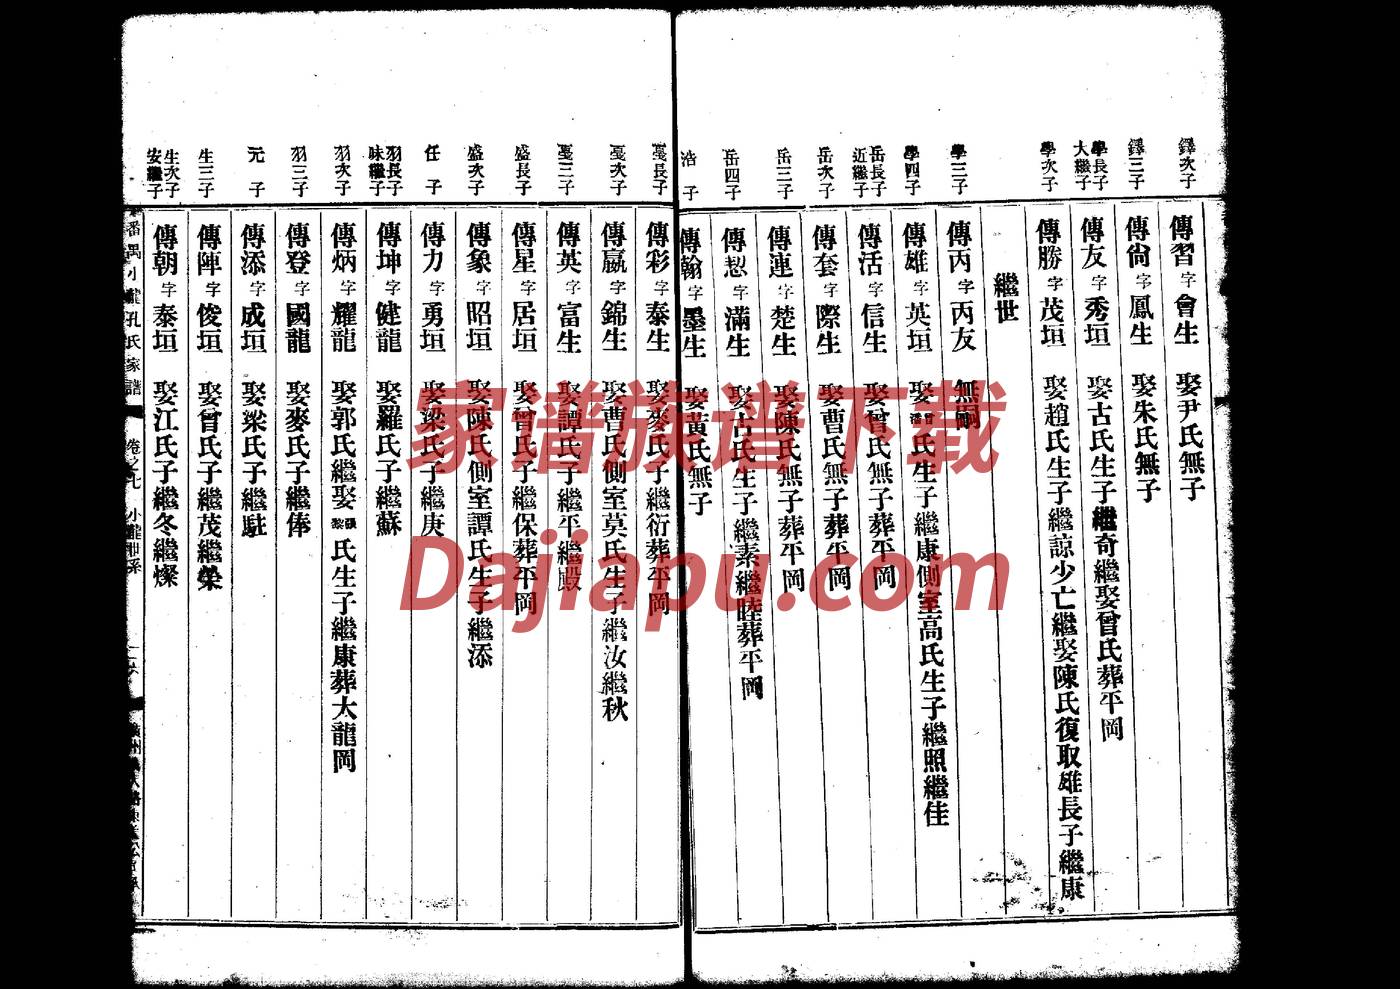 鐸次子 傳習字會生 娶尹氏無子
鐸三子 傳尙字鳳生 娶朱氏無子
學長子大繼子 傳友字秀垣 娶古氏生子繼奇繼娶曾氏葬平岡
學次子 傳勝字茂垣 娶趙氏生子繼諒少亡繼娶陳氏復取雄長子繼康
繼世
學三子 傳丙字丙友 無嗣
學四子 傳雄字英垣 娶曾潘氏生子繼康側室高氏生子繼照繼佳
岳長子近繼子 傳活字信生 娶曾氏無子葬平岡
岳次子 傳套字際生 娶曹氏無子葬平岡
岳三子 傳連字楚生 娶陳氏無子葬平岡
岳四子 傳恝字滿生 娶古氏生子繼素繼睦葬平岡
浩子 傳翰字墨生 娶黃氏無子
戞長子 傳彩字泰生 娶麥氏子繼衍葬平岡
戞次子 傳嬴字錦生 娶曹氏側室莫氏生子繼汝繼秋
戞三子 傳英字富生 娶譚氏子繼平繼殿
盛長子 傳星字居垣 娶曾氏子繼保葬平岡
盛次子 傳象字昭垣 娶陳氏側室譚氏生子繼添
任子 傳力字勇垣 娶梁氏子繼庚
羽長子味繼子 傳坤字健龍 娶羅氏子繼蘇
羽次子 傳炳字耀龍 娶郭氏繼娶張黎氏生子繼康葬大龍岡
羽三子 傳登字國龍 娶麥氏子繼俸
元子 傳添字成垣 娶梁氏子繼駐
生三子 傳陣字俊垣 娶曾氏子繼茂繼榮
生次子安繼子 傳朝字泰垣 娶江氏子繼冬繼燦
番禺小龍孔氏家譜 卷之七 小龍世系
家谱族谱下载
Dajiapu.com